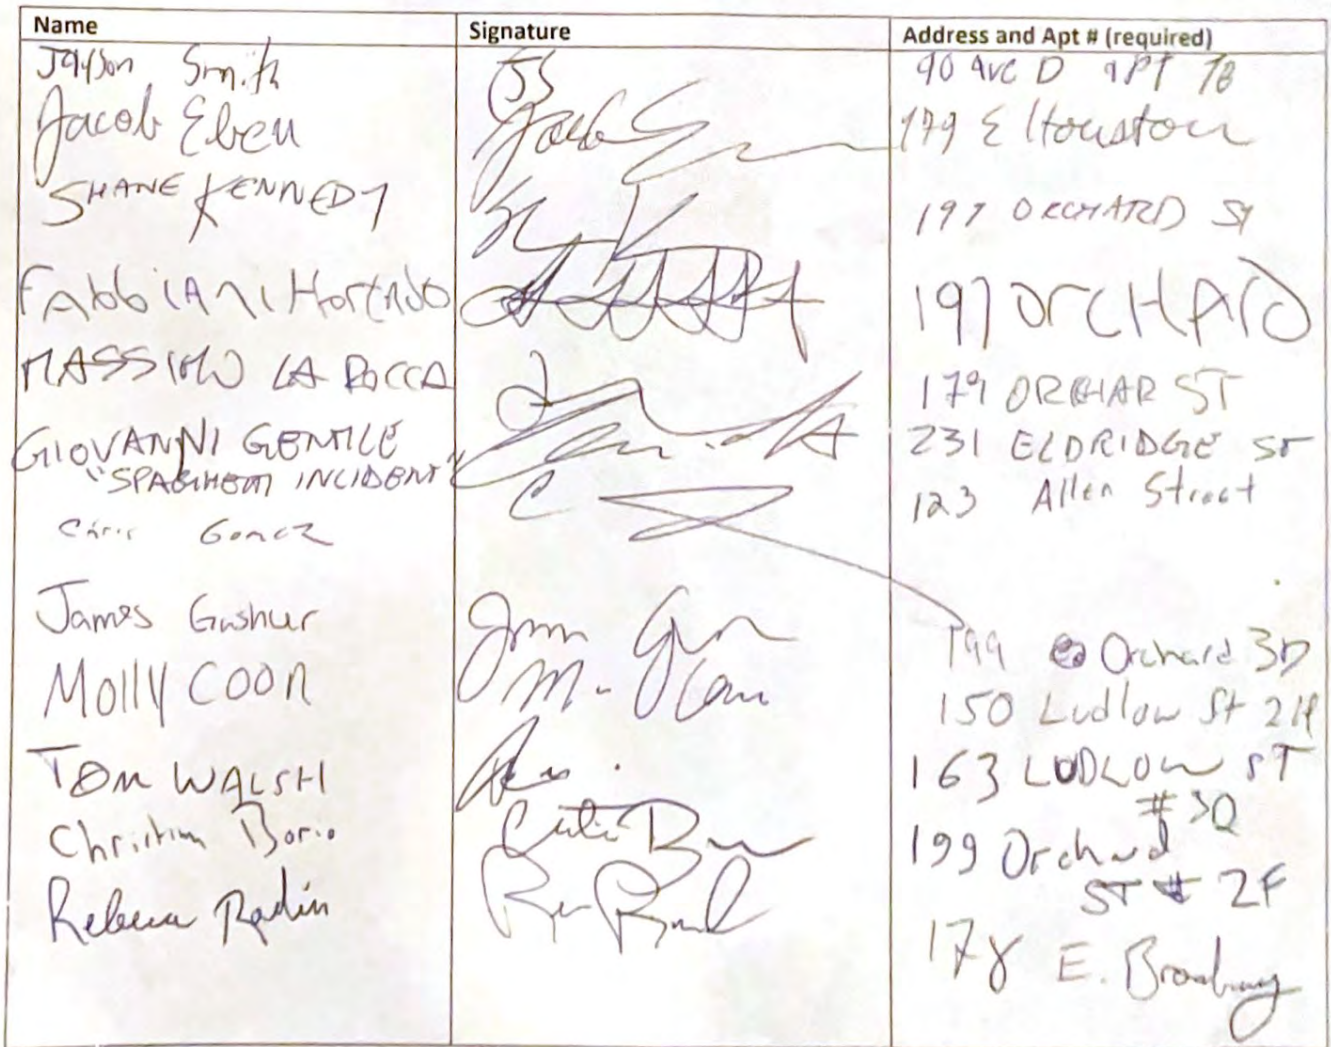 Name Signature Address and Apt # (required)
Jayson Smith JS 90 Ave D apt 7B
Jacob Eben 179 E Houston
SHANE KENNEDY 197 ORCHARD ST
FAbbiANi 197 OrCHArD
MASSIMO LA ROCCA 179 ORCHAR ST
GIOVANNI GENTILE 231 ELDRIDGE ST
"SPAGHETTI INCIDENT"
Chris Gomez 123 Allen Street
James Gushur 199 Orchard 3D
Molly COON 150 Ludlow St
TOM WALSH 163 LUDLOW ST
#3D
Christian Borio 199 Orchard
ST # 2F
Rebecca Radin 178 E. Broadway